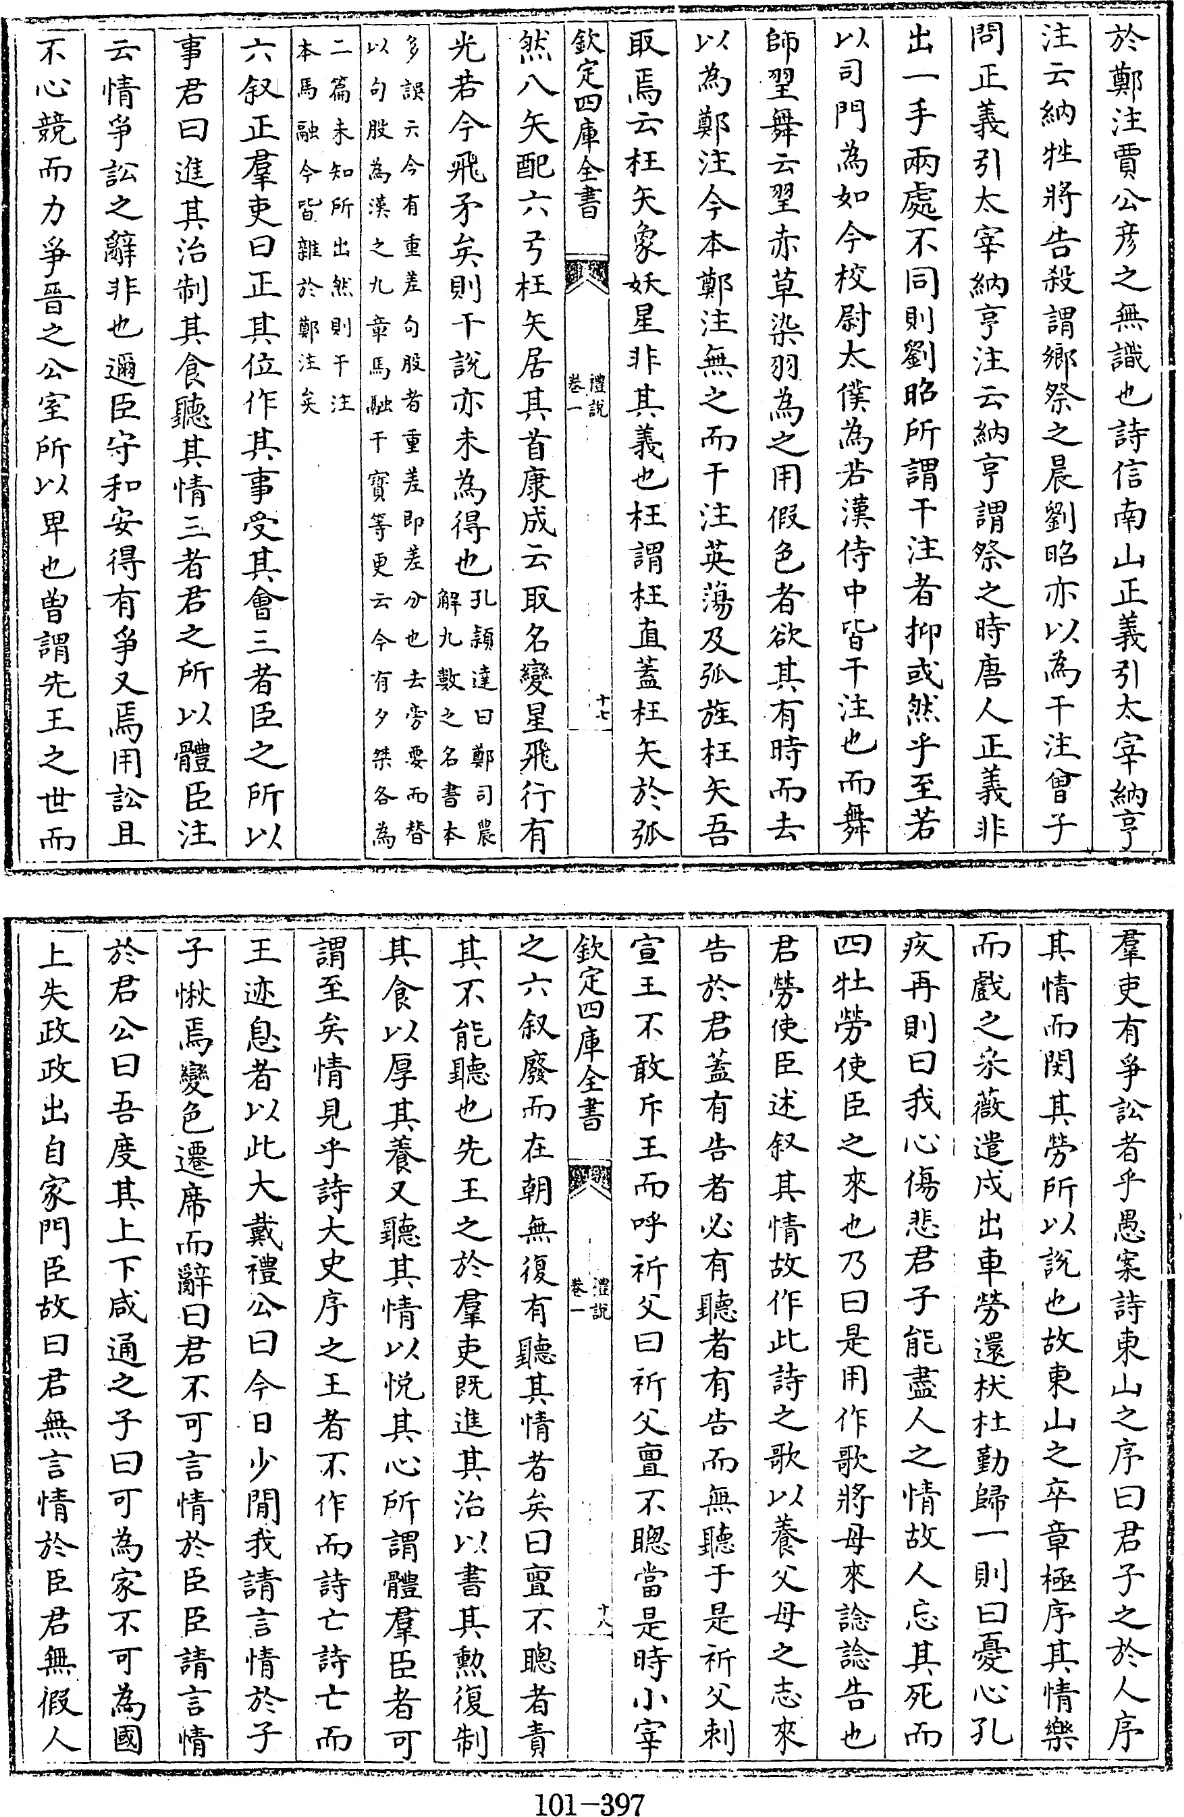 於鄭注賈公彦之無識也詩信南山正義引太宰納亨
注云納牲將告殺謂鄉祭之晨劉昭亦以為干注曾子
問正義引太宰納亨注云納亨謂祭之時唐人正義非
出一手兩處不同則劉昭所謂干注者抑或然乎至若
以司門為如今校尉太僕為若漢侍中皆干注也而舞
師翌舞云翌赤草染羽為之用假色者欲其有時而去
以為鄭注今本鄭注無之而干注英蕩及弧旌枉矢吾
取焉云枉矢象妖星非其義也枉謂枉直蓋枉矢於弧
欽定四庫全書
禮說
卷一
十七
然八矢配六弓枉矢居其首康成云取名變星飛行有
光若今飛矛矣則干說亦未為得也孔頴達曰鄭司農
解九數之名書本
多誤云今有重差句股者重差即差分也去旁要而替
以句股為漢之九章馬融干寳等更云今有夕桀各為
二篇未知所出然則干注
本馬融今皆雜於鄭注矣
六叙正羣吏曰正其位作其事受其會三者臣之所以
事君曰進其治制其食聽其情三者君之所以體臣注
云情爭訟之辭非也邇臣守和安得有爭又焉用訟且
不心競而力爭晉之公室所以卑也曽謂先王之世而
羣吏有爭訟者乎愚案詩東山之序曰君子之於人序
其情而閔其勞所以說也故東山之卒章極序其情樂
而戲之采薇遣戍出車勞還杕杜勤歸一則曰憂心孔
疚再則曰我心傷悲君子能盡人之情故人忘其死而
四牡勞使臣之來也乃曰是用作歌將母來諗諗告也
君勞使臣述叙其情故作此詩之歌以養父母之志來
告於君蓋有告者必有聽者有告而無聽于是祈父刺
宣王不敢斥王而呼祈父曰祈父亶不聰當是時小宰
欽定四庫全書
禮說
卷一
十八
之六叙廢而在朝無復有聽其情者矣曰亶不聰者責
其不能聽也先王之於羣吏既進其治以書其勲復制
其食以厚其養又聽其情以悅其心所謂體羣臣者可
謂至矣情見乎詩大史序之王者不作而詩亡詩亡而
王迹息者以此大戴禮公曰今日少閒我請言情於子
子愀焉變色遷席而辭曰君不可言情於臣臣請言情
於君公曰吾度其上下咸通之子曰可為家不可為國
上失政政出自家門臣故曰君無言情於臣君無假人
101-397